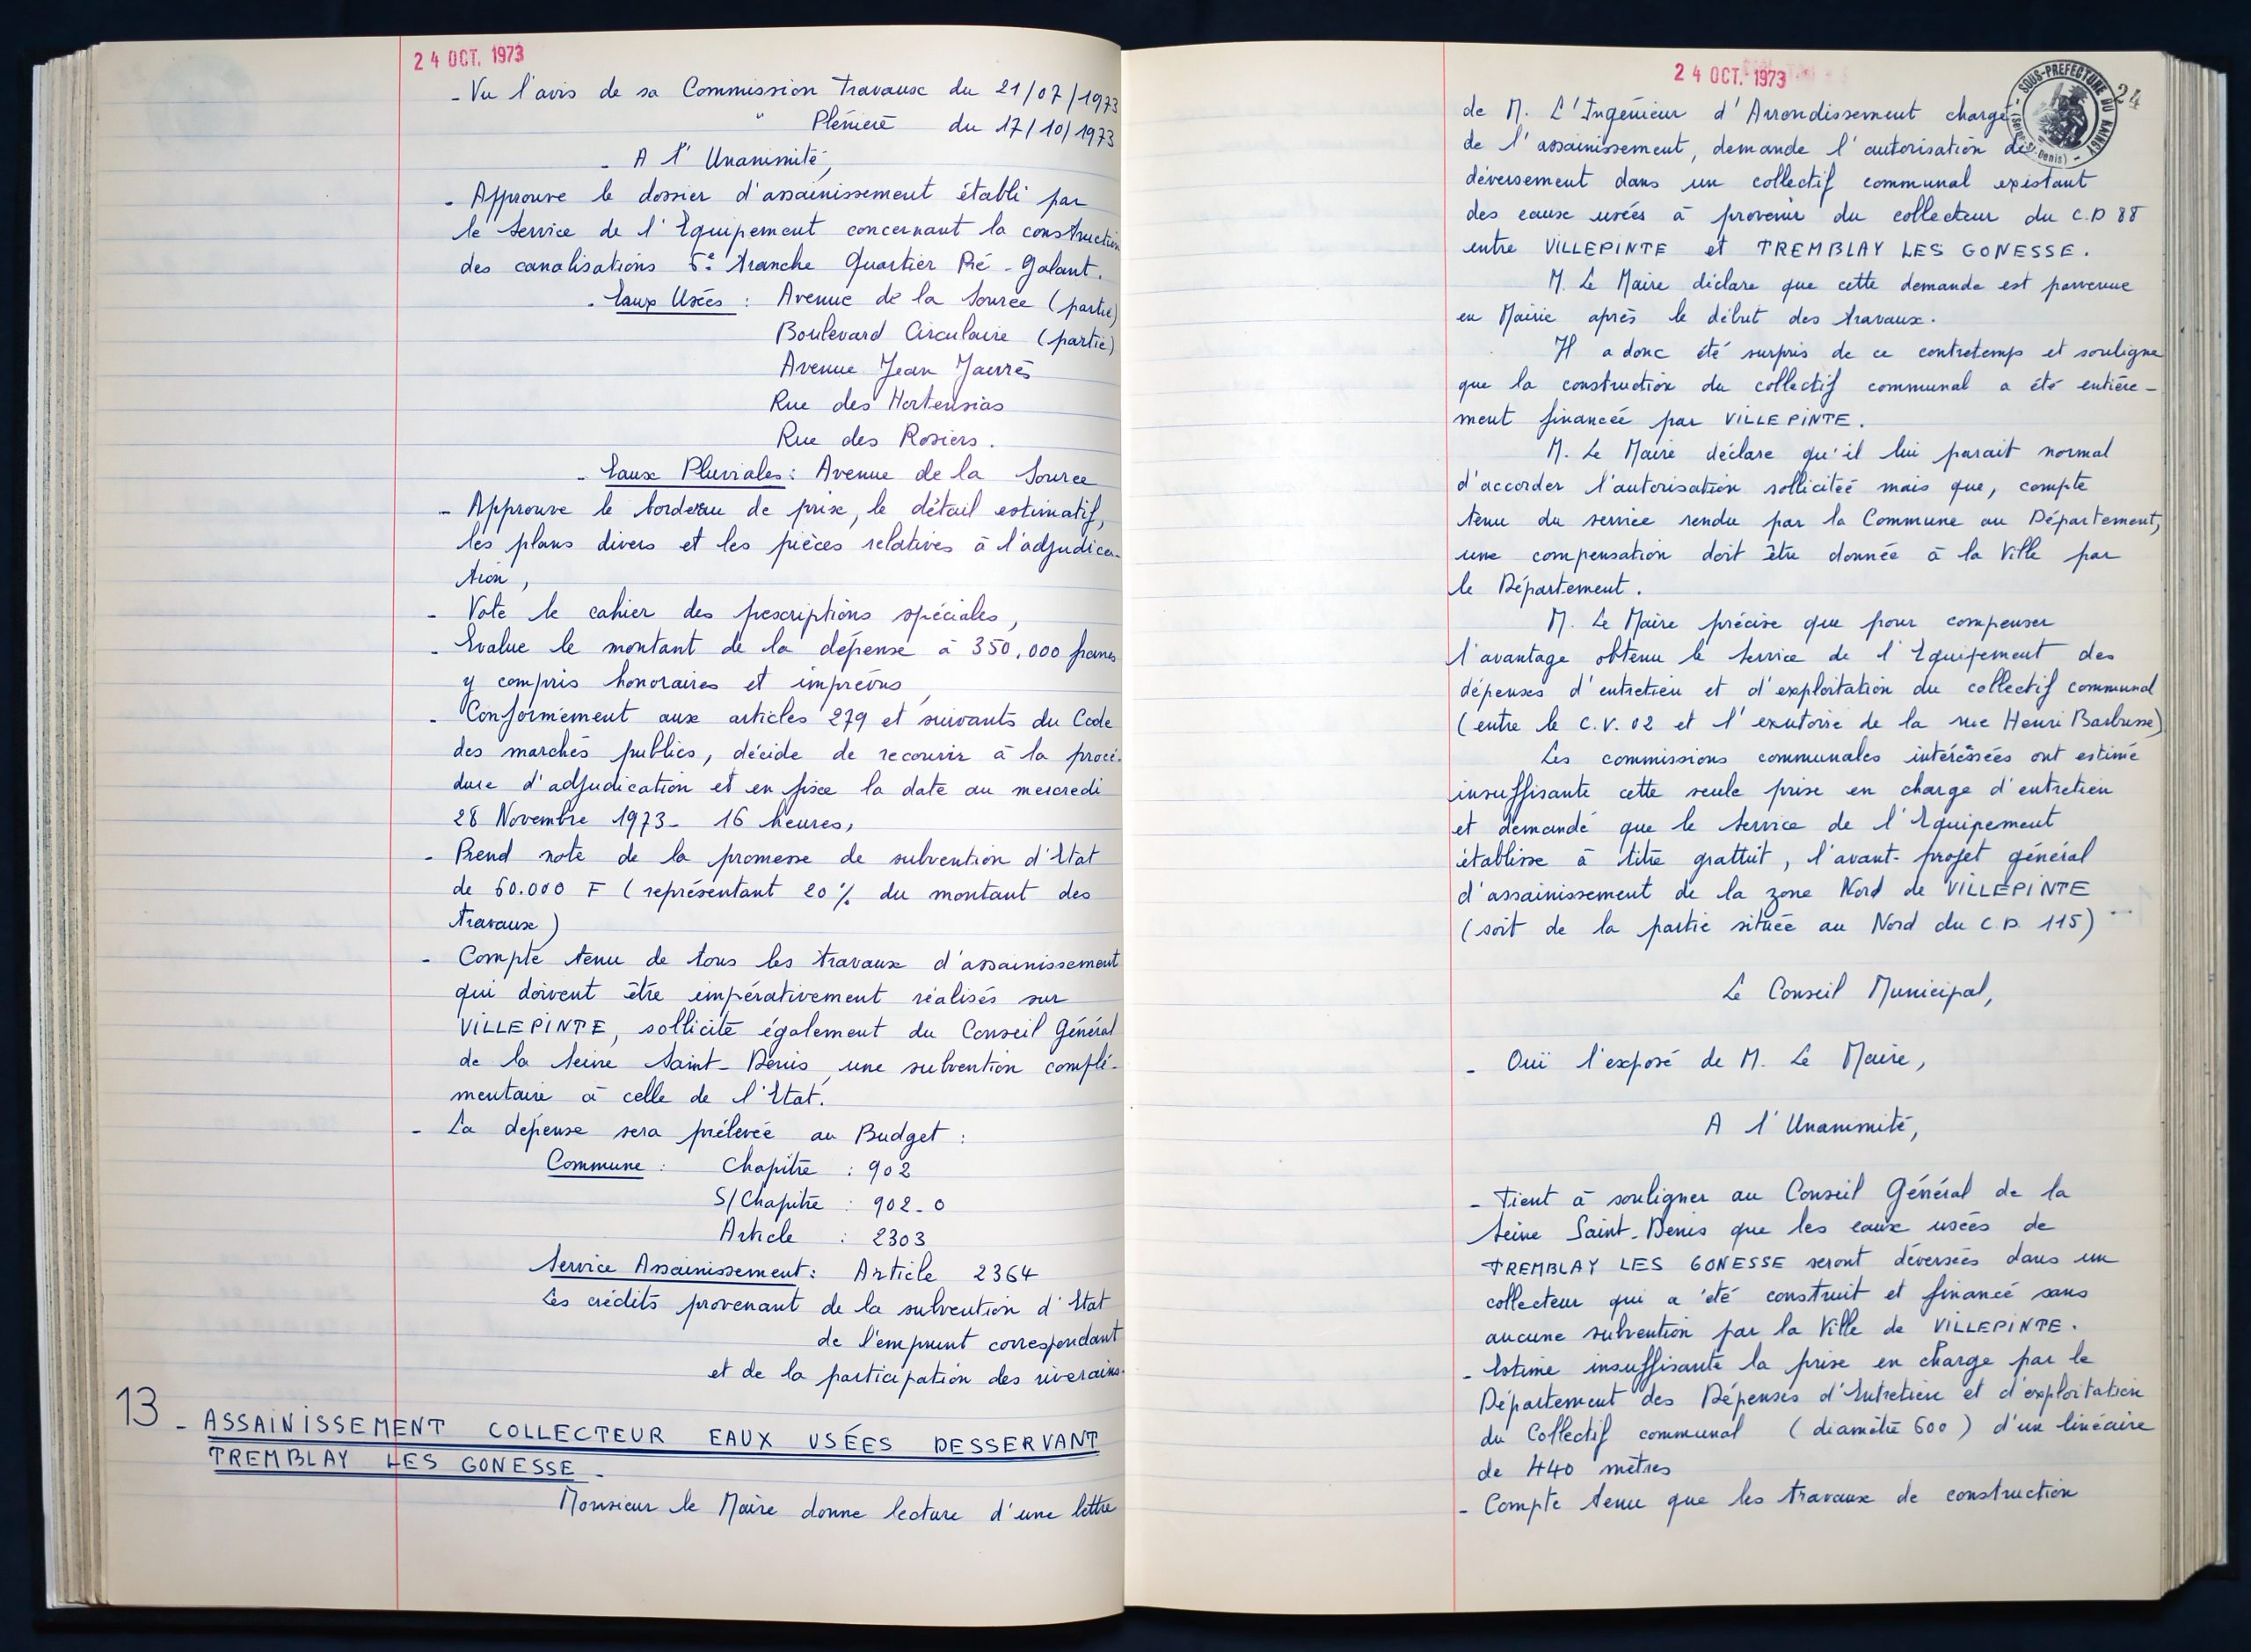 24 OCT. 1973
- Vu l'avis de sa Commission Travaux du 21/07/1973
" Plénière du 17/10/1973
- A l'Unanimité,
- Approuve le dossier d'assainissement établi par
le Service de l'Equipement concernant la construction
des canalisations 5e Tranche Quartier Pré-Galant.
- Eaux Usées : Avenue de la Source (partie)
Boulevard Circulaire (partie)
Avenue Jean Jaurès
Rue des Hortensias
Rue des Rosiers.
- Eaux Pluviales : Avenue de la Source
- Approuve le bordereau de prix, le détail estimatif,
les plans divers et les pièces relatives à l'adjudica-
tion,
- Vote le cahier des prescriptions spéciales,
- Evalue le montant de la dépense à 350.000 francs
y compris honoraires et imprévus,
- Conformément aux articles 279 et suivants du Code
des marchés publics, décide de recourir à la procé-
dure d'adjudication et en fixe la date au mercredi
28 Novembre 1973 - 16 heures,
- Prend note de la promesse de subvention d'Etat
de 60.000 F (représentant 20 % du montant des
travaux)
- Compte tenu de tous les travaux d'assainissement
qui doivent être impérativement réalisés sur
VILLEPINTE, sollicite également du Conseil Général
de la Seine Saint-Denis, une subvention complé-
mentaire à celle de l'Etat.
- La dépense sera prélevée au Budget :
Commune : Chapitre : 902
S/Chapitre : 902-0
Article : 2303
Service Assainissement : Article 2364
Les crédits provenant de la subvention d'Etat
de l'emprunt correspondant
et de la participation des riverains.
13 - ASSAINISSEMENT COLLECTEUR EAUX USÉES DESSERVANT
TREMBLAY LES GONESSE -
Monsieur le Maire donne lecture d'une lettre
24 OCT. 1973
SOUS-PREFECTURE DU RAINCY (Seine-St-Denis)
24
de M. L'Ingénieur d'Arrondissement chargé
de l'assainissement, demande l'autorisation de
déversement dans un collectif communal existant
des eaux usées à provenir du collecteur du C.D 88
entre VILLEPINTE et TREMBLAY LES GONESSE.
M. Le Maire déclare que cette demande est parvenue
en Mairie après le début des travaux.
Il a donc été surpris de ce contretemps et souligne
que la construction du collectif communal a été entière-
ment financée par VILLEPINTE.
M. Le Maire déclare qu'il lui parait normal
d'accorder l'autorisation sollicitée mais que, compte
tenu du service rendu par la Commune au Département,
une compensation doit être donnée à la Ville par
le Département.
M. Le Maire précise que pour compenser
l'avantage obtenu le Service de l'Equipement des
dépenses d'entretien et d'exploitation du collectif communal
(entre le C.V. 02 et l'exutoire de la rue Henri Barbusse)
Les commissions communales intéréssées ont estimé
insuffisante cette seule prise en charge d'entretien
et demandé que le Service de l'Equipement
établisse à titre grattuit, l'avant-projet général
d'assainissement de la zone Nord de VILLEPINTE
(soit de la partie située au Nord du C.D. 115)
Le Conseil Municipal,
- Ouï l'exposé de M. Le Maire,
A l'Unanimité,
- Tient à souligner au Conseil Général de la
Seine Saint-Denis que les eaux usées de
TREMBLAY LES GONESSE seront déversées dans un
collecteur qui a été construit et financé sans
aucune subvention par la Ville de VILLEPINTE.
- Estime insuffisante la prise en charge par le
Département des Dépenses d'Entretien et d'exploitation
du Collectif communal (diamètre 600) d'un linéaire
de 440 mètres
- Compte tenu que les travaux de construction